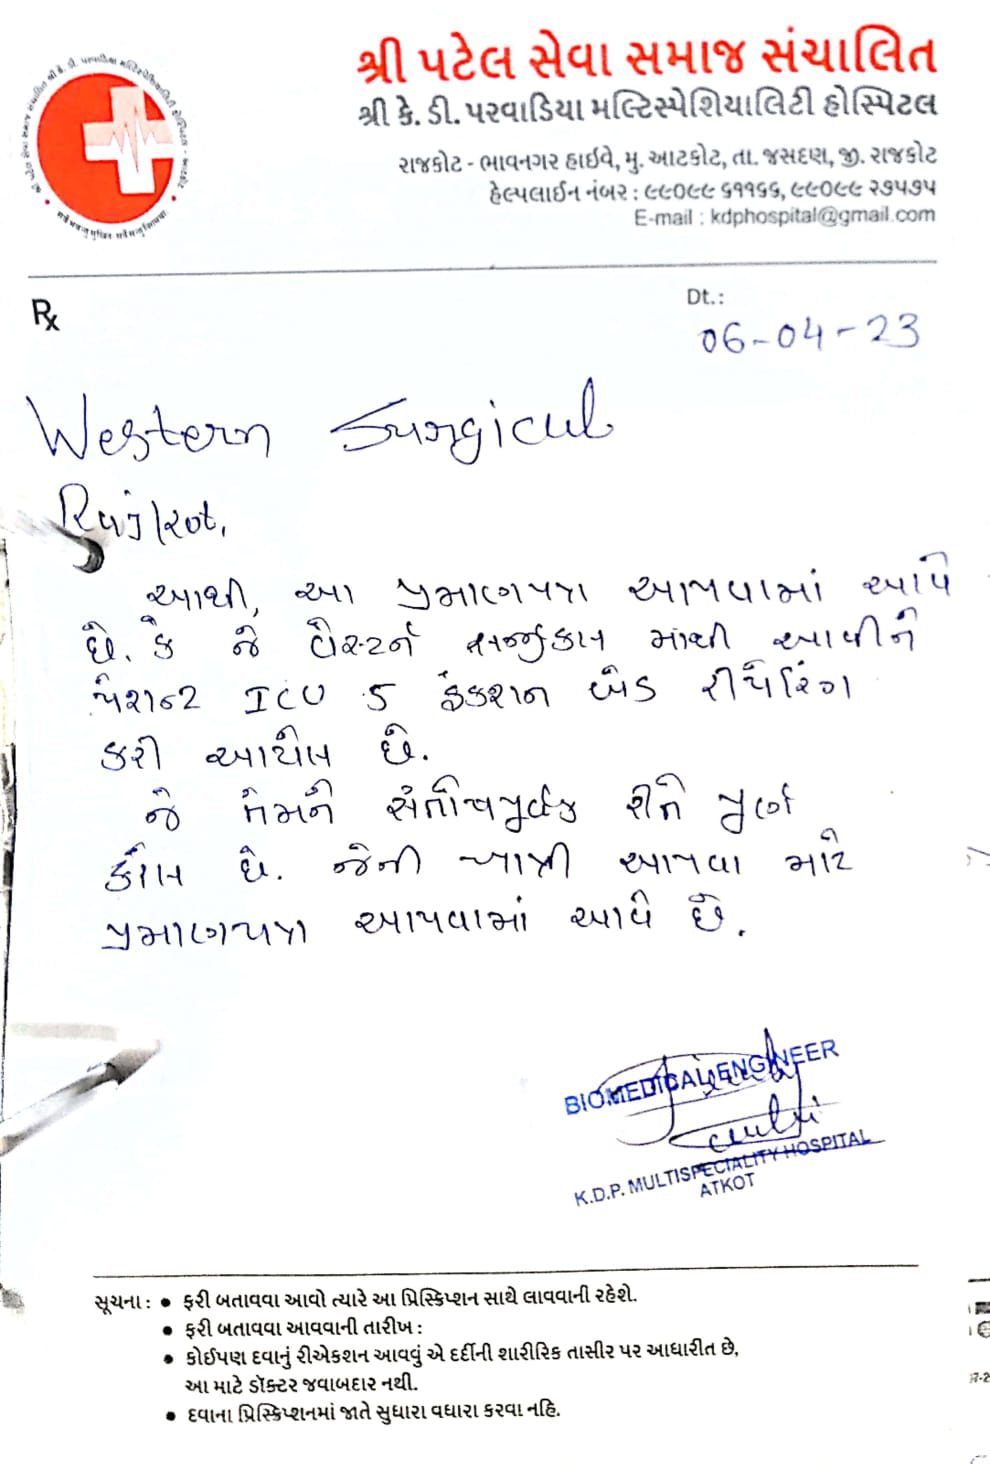 શ્રી પટેલ સેવા સમાજ સંચાલિત
શ્રી કે. ડી. પરવાડિયા મલ્ટિસ્પેશિયાલિટી હોસ્પિટલ
રાજકોટ - ભાવનગર હાઇવે, મુ. આટકોટ, તા. જસદણ, જી. રાજકોટ
હેલ્પલાઈન નંબર : ૯૯૦૯૯ ૬૧૧૬૬, ૯૯૦૯૯ ૨૭૫૭૫
E-mail : kdphospital@gmail.com
Rx
Dt.:
06-04-23
Western Surgicul
Rajkot,
આથી, આ પ્રમાણપત્ર આપવામાં આવે
છે. કે જે વેસ્ટર્ન સર્જીકલ માંથી આવીને
પેશન્ટ ICU 5 ફંકશન બેડ રીપેરિંગ
કરી આપેલ છે.
જે તેમને સંતોષપુર્વક રીતે પુર્ણ
કરેલ છે. જેની ખાત્રી આપવા માટે
પ્રમાણપત્ર આપવામાં આવે છે.
BIOMEDICAL ENGINEER
K.D.P. MULTISPECIALITY HOSPITAL
ATKOT
સૂચના : • ફરી બતાવવા આવો ત્યારે આ પ્રિસ્ક્રિપ્શન સાથે લાવવાની રહેશે.
• ફરી બતાવવા આવવાની તારીખ :
• કોઈપણ દવાનું રીએકશન આવવું એ દર્દીની શારીરિક તાસીર પર આધારીત છે,
આ માટે ડૉક્ટર જવાબદાર નથી.
• દવાના પ્રિસ્ક્રિપ્શનમાં જાતે સુધારા વધારા કરવા નહિ.